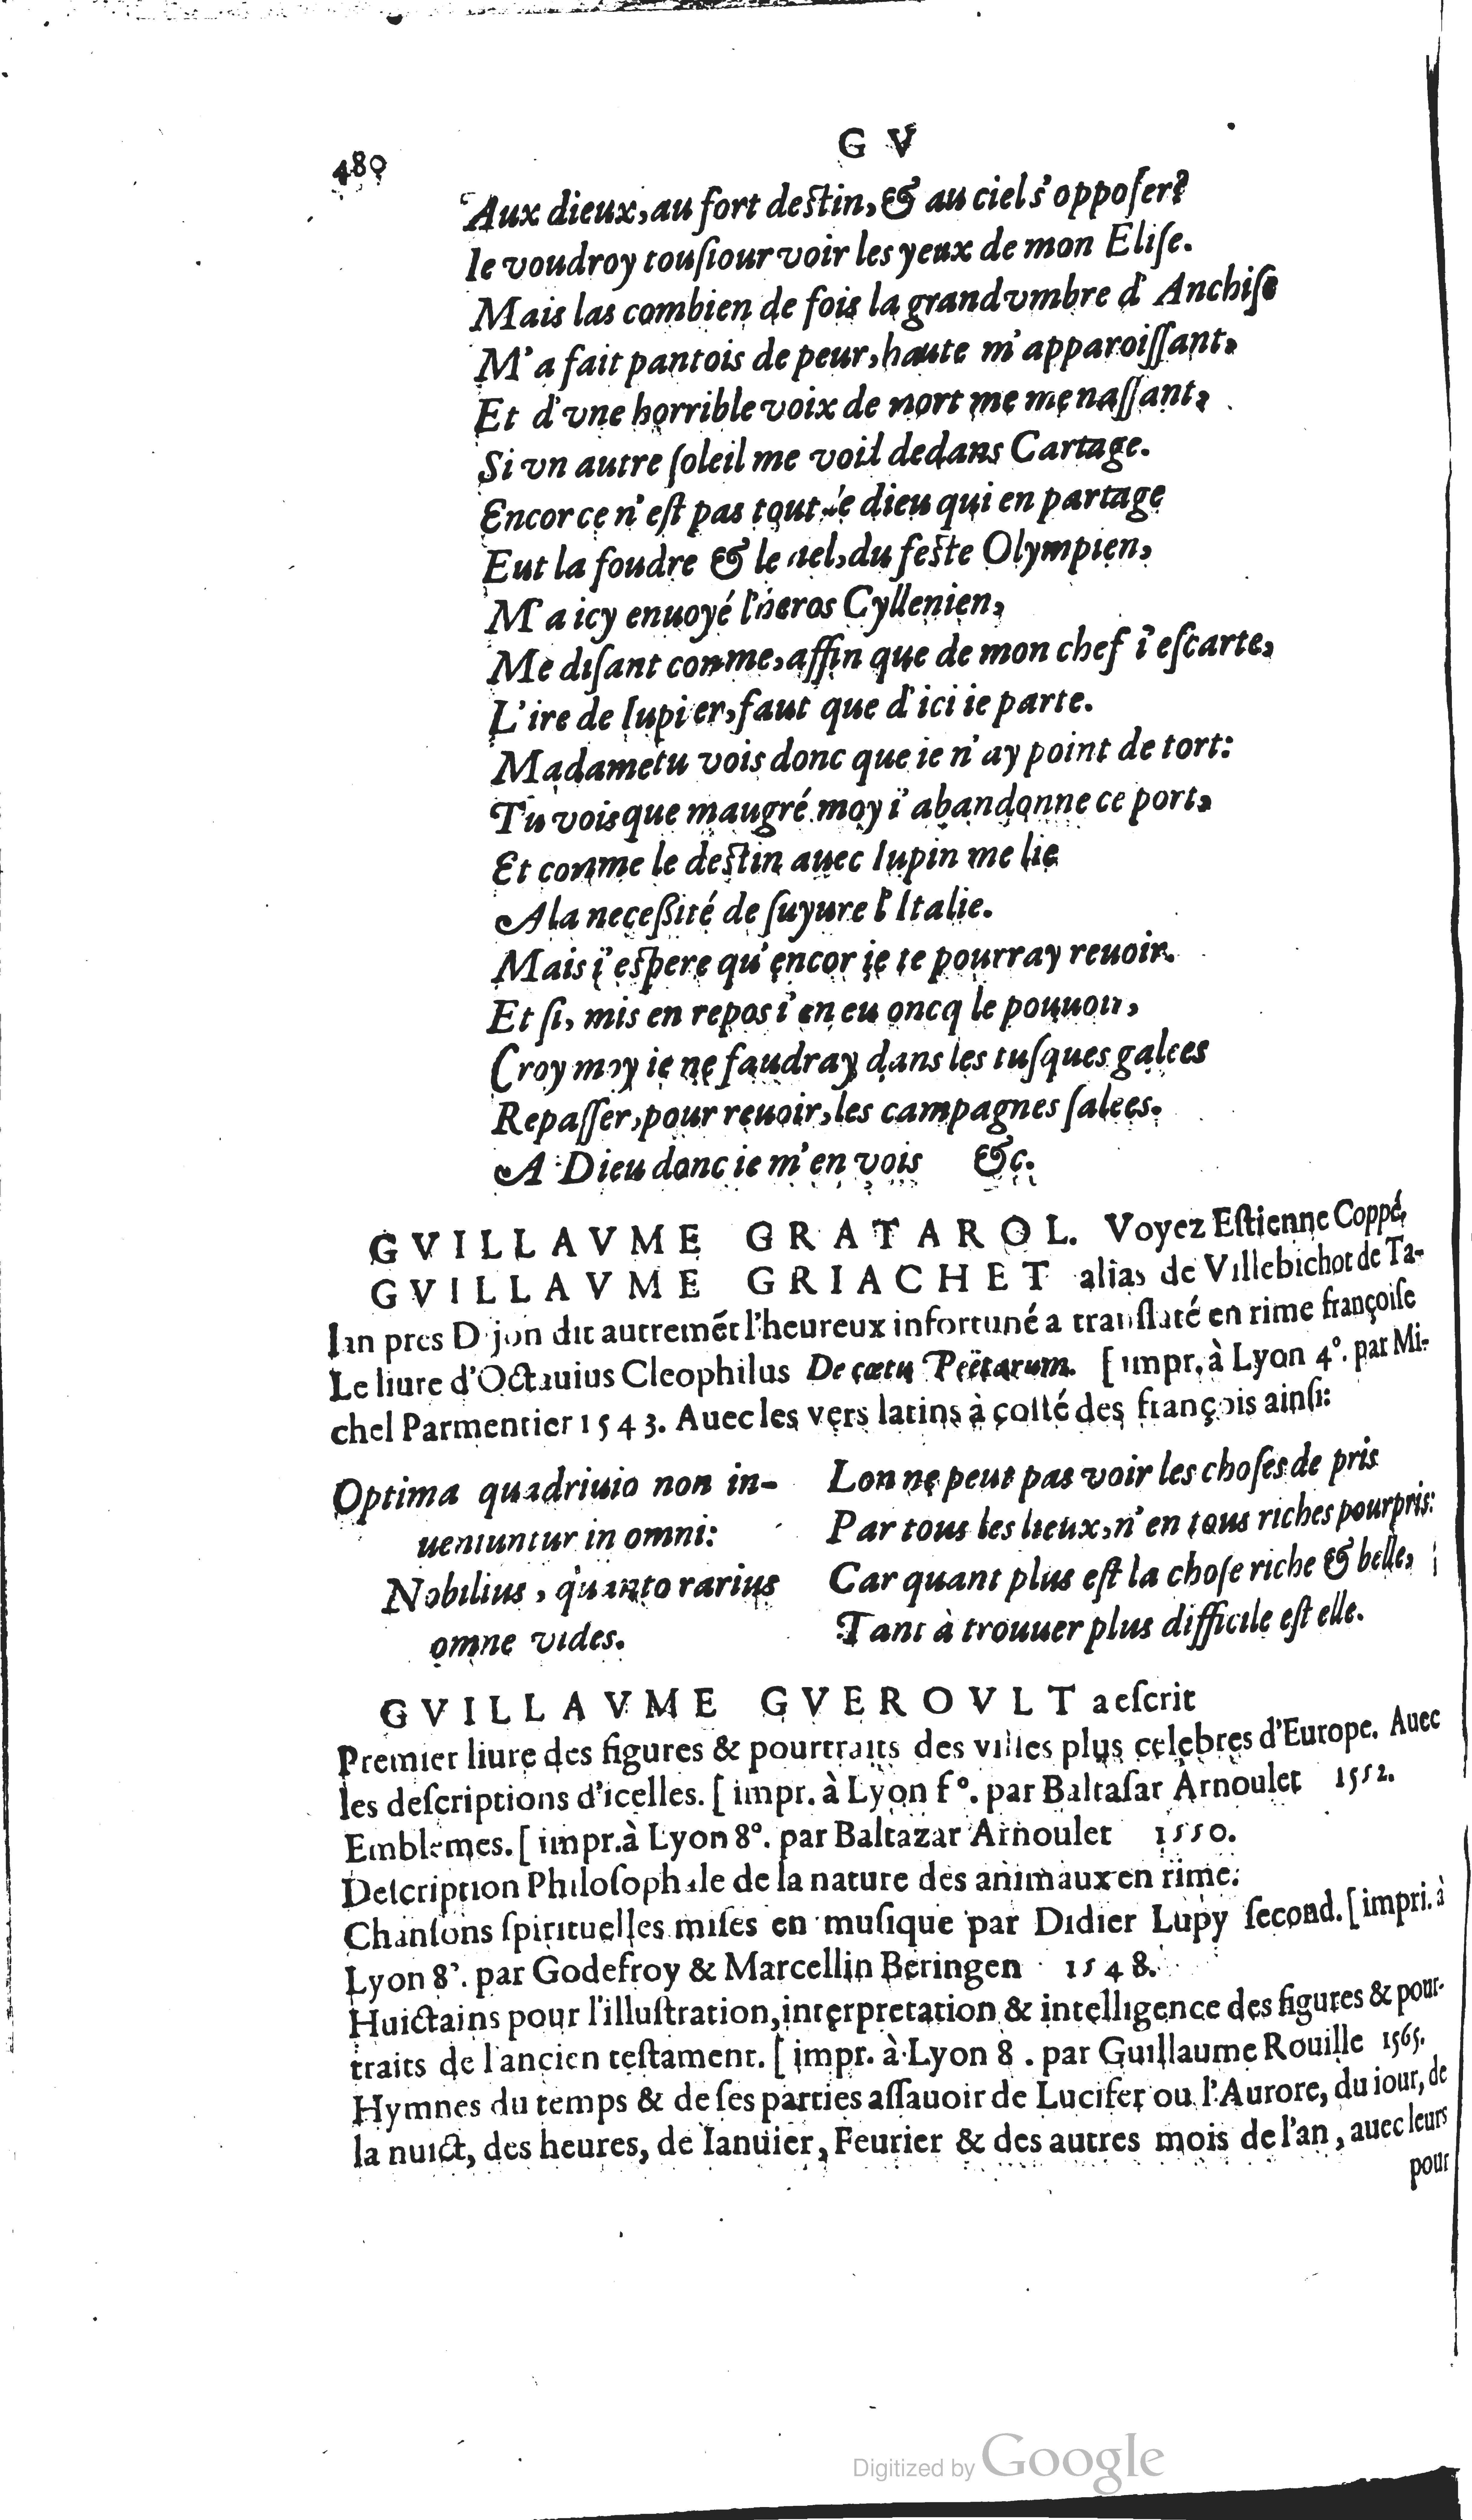 480
G V
Aux dieux, au fort destin, & au ciel s'opposer?
Ie voudroy tousiour voir les yeux de mon Elise.
Mais las combien de fois la grand vmbre d'Anchise
M'a fait pantois de peur, haute m'apparoissant,
Et d'vne horrible voix de mort me menassant,
Si vn autre soleil me voit dedans Cartage.
Encor ce n'est pas tout le dieu qui en partage
Eut la foudre & le ciel, du feste Olympien,
M'a icy enuoyé l'heros Cyllenien,
Me disant comme, affin que de mon chef i'escarte,
L'ire de Iupi er, faut que d'ici ie parte.
Madame tu vois donc que ie n'ay point de tort:
Tu vois que maugré moy i'abandonne ce port,
Et comme le destin auec Iupin me lie
A la necessité de suyure l'Italie.
Mais i'espere qu'encor ie te pourray reuoir.
Et si, mis en repos i'en eu oncq le pouuoir,
Croy moy ie ne faudray dans les tusques galees
Repasser, pour reuoir, les campagnes salees.
A Dieu donc ie m'en vois &c.
GVILLAVME GRATAROL. Voyez Estienne Coppé,
GVILLAVME GRIACHET alias de Villebichot de Ta-
lan pres Dijon dit autremēt l'heureux infortuné a translaté en rime françoise
Le liure d'Octauius Cleophilus De cœtu Poëtarum. [impr. à Lyon 4°. par Mi-
chel Parmentier 1543. Auec les vers latins à costé des françois ainsi:
Optima quadriuio non in-
ueniuntur in omni:
Nobilius, quanto rarius
omne vides.
Lon ne peut pas voir les choses de pris
Par tous les lieux, n'en tous riches pourpris:
Car quant plus est la chose riche & belle,
Tant à trouuer plus difficile est elle.
GVILLAVME GVEROVLT a escrit
Premier liure des figures & pourtraits des villes plus celebres d'Europe. Auec
les descriptions d'icelles. [impr. à Lyon f°. par Baltasar Arnoulet 1552.
Emblemes. [impr. à Lyon 8°. par Baltazar Arnoulet 1550.
Description Philosophale de la nature des animaux en rime.
Chansons spirituelles mises en musique par Didier Lupy second. [impri. à
Lyon 8°. par Godefroy & Marcellin Beringen 1548.
Huictains pour l'illustration, interpretation & intelligence des figures & pour-
traits de l'ancien testament. [impr. à Lyon 8. par Guillaume Rouille 1565.
Hymnes du temps & de ses parties assauoir de Lucifer ou l'Aurore, du iour, de
la nuict, des heures, de Ianuier, Feurier & des autres mois de l'an, auec leurs
pour
Digitized by Google